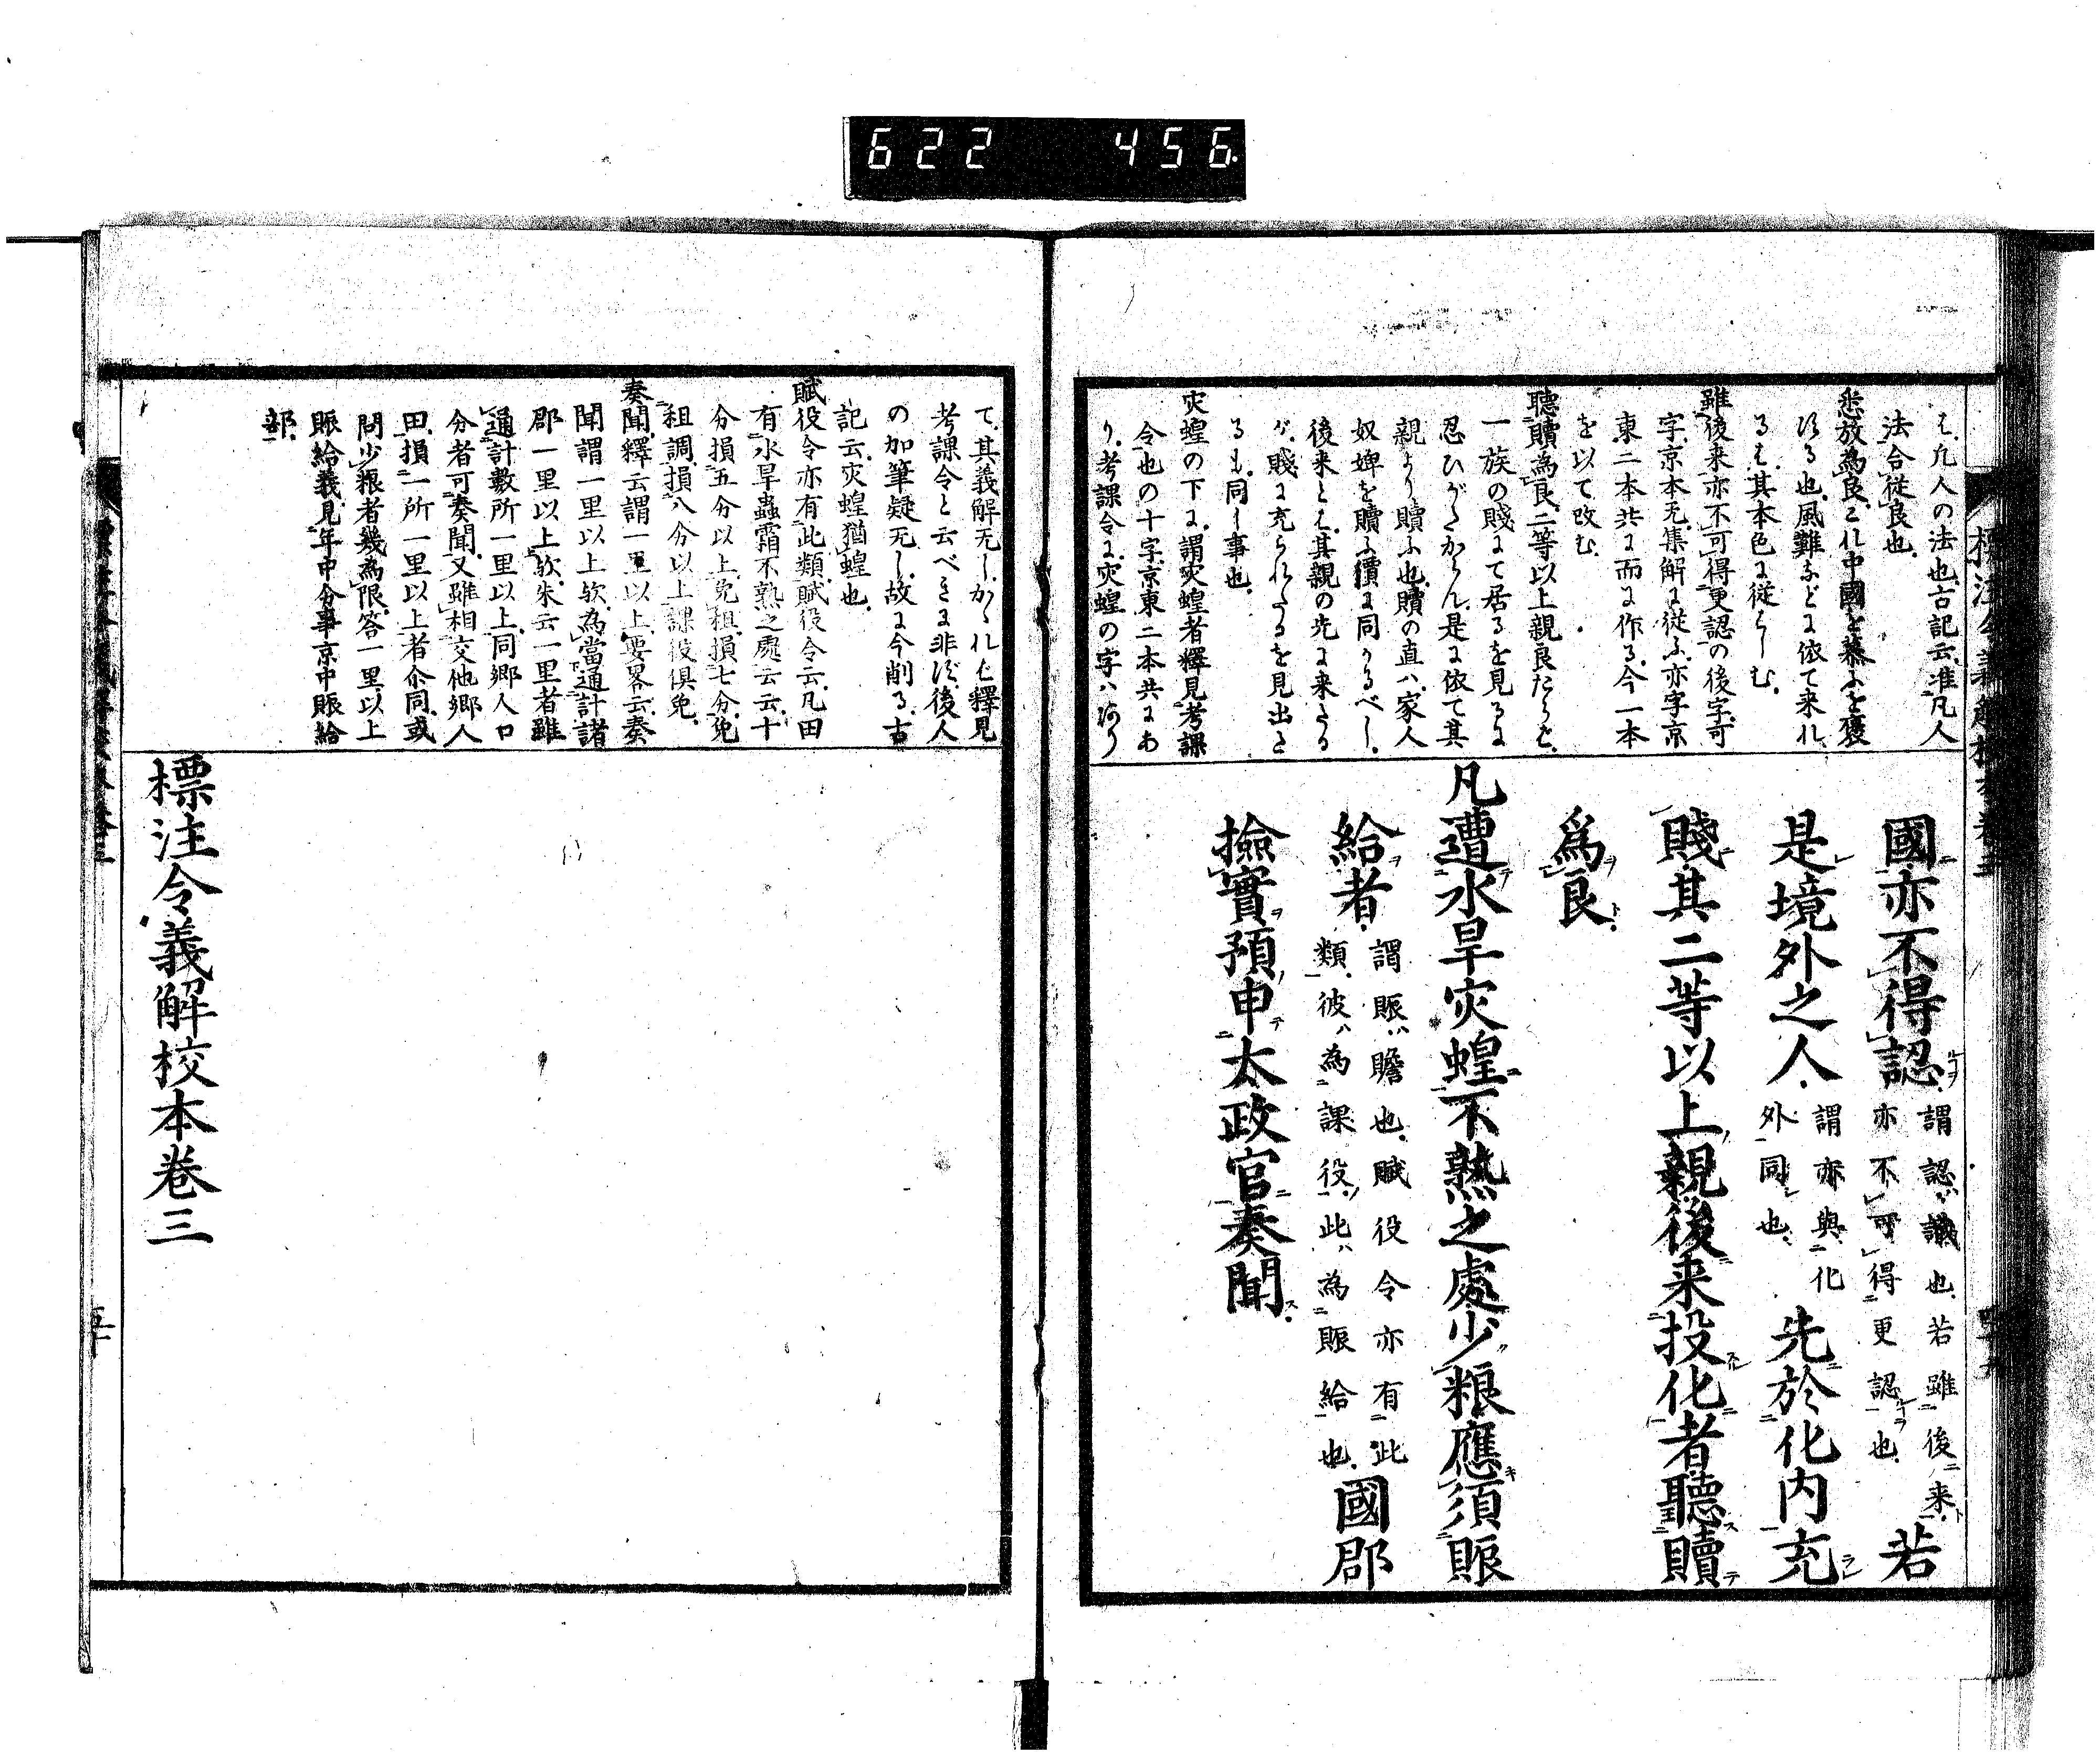 622 456
は、凡人の法也、古記云、准凡人
法、合從良也、
悉放為良、これ中國を慕ふを褒
る也、風難などに依て来れ
るは、其本色に従らしむ、
雖後来亦不可得更認の後字、可
字、京本无、集解に従ふ、亦字京
東二本共に而に作る、今一本
を以て改む、
聽贖為良、二等以上親良たらど、
一族の賤にて居るを見るに
忍ひがたからん、是に依て其
親より贖ふ也、贖の直ハ、家人
奴婢を贖ふ價に同かるべし、
後来とは、其親の先に来たる
が、賤に充られたるを見出さ
るも、同し事也、
灾蝗の下に、謂灾蝗者釋見考課
令也の十字、京東二本共にあ
り、考課令に、灾蝗の字ハ有り
國亦不得認、
謂認ハ識也、若雖後来、
亦不可得更認也、
若
是境外之人、
謂亦與化
外同也、
先於化内充
賤其二等以上親後来投化者聽贖
爲良、
凡遭水旱灾蝗不熟之處少粮應須賑
給者、
謂賑ハ贍也、賦役令亦有此
類、彼ハ為課役、此ハ為賑給也、
國郡
撿實預申太政官奏聞、
て、其義解无し、かゝれば釋見
考課令と云べきに非ず、後人
の加筆疑无し、故に今削る、古
記云、灾蝗猶蝗也、
賦役令亦有此類、賦役令云、凡田
有水旱蟲霜不熟之處云云、十
分損五分以上、免租、損七分、免
租調、損八分以上、課役俱免、
奏聞、釋云、謂一里以上、要畧云、奏
聞謂一里以上欤、為當通計諸
郡一里以上欤、朱云、一里者雖
通計數所一里以上、同郷人口
分者可奏聞、又雖相交他郷人
田、損一所一里以上者亦同、或
問、少粮者幾為限、答一里以上
賑給義、見年中行事京中賑給
部、
標注令義解校本巻三
五十